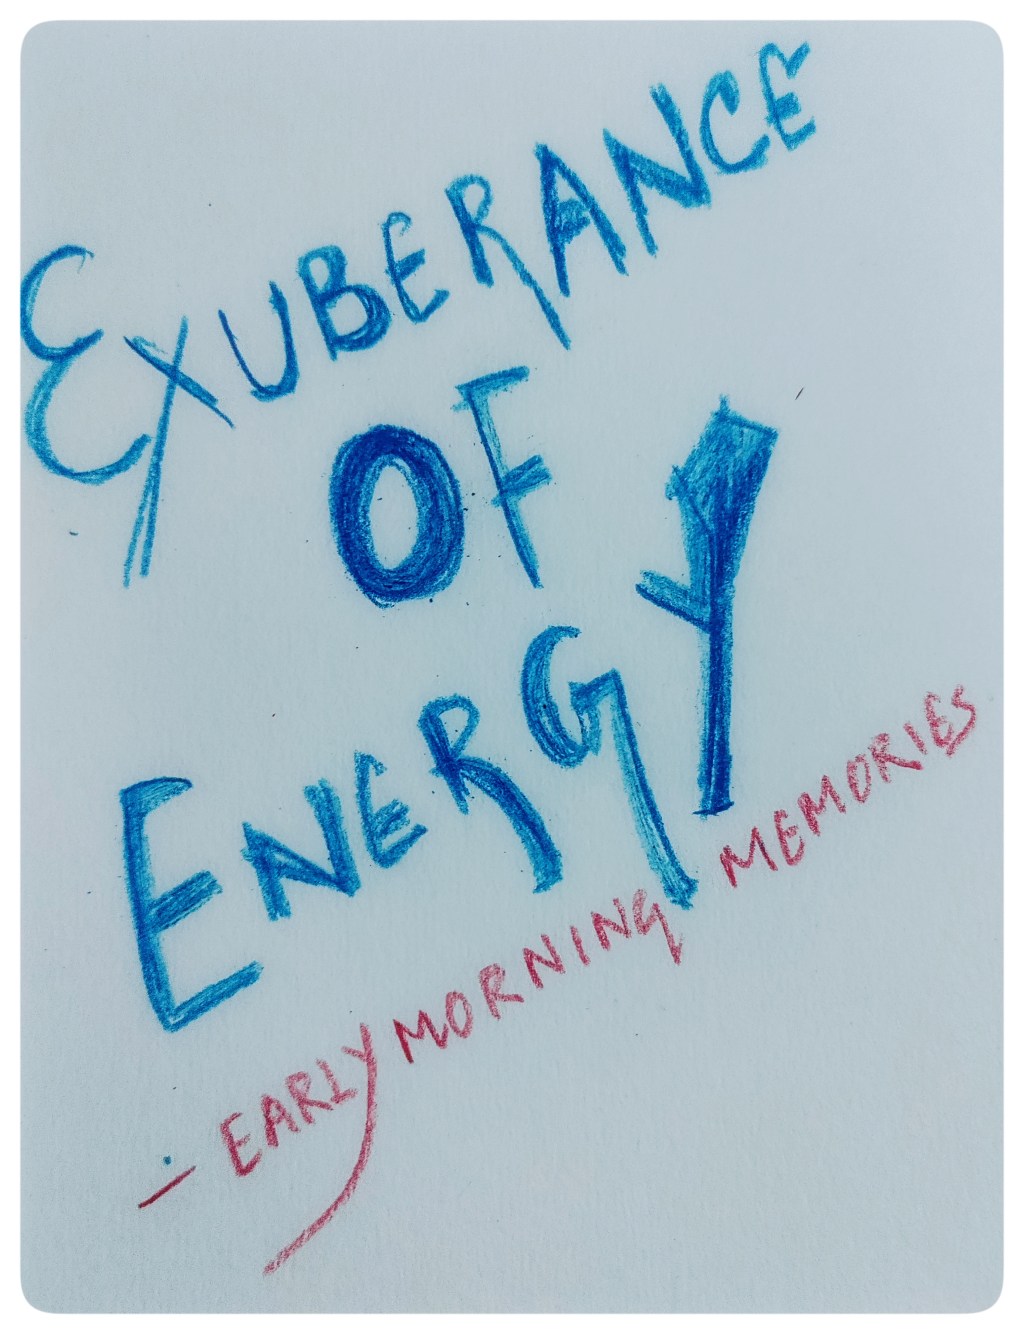 EXUBERANCE
OF
ENERGY
- EARLY MORNING MEMORIES